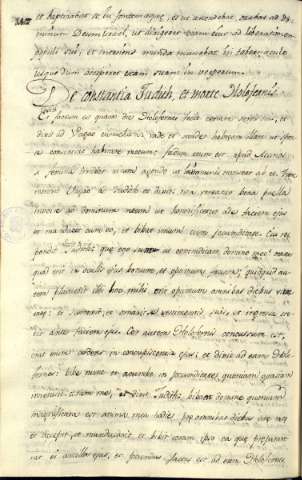 et baptizabat se in fonte aquae, et ut ascendebat, orabat ad Do-
minum Deum Israel, ut dirigeret viam eius ad liberationem
populi sui, et introiens munda manebat in tabernaculo
usque dum acciperet escam suam in vespere.
De constantia Judith, et morte Holofernis
Et factum est quarto die Holofernes fecit cenam servis suis, et
dixit ad Vagao eunuchum: vade et suade hebraeam illam ut spon
te consentiat habitare mecum: foedum est enim apud Assirios
si femina irrideat virum agendo ut immunis transeat ab eo. Tunc
introivit Vagao ad Judith et dixit: non vereatur bona puella
introire ad dominum meum ut honorificetur ante faciem ejus
et manducet cum eo, et bibat vinum cum jucunditate. Cui res
pondit Judith: quae ego sum ut contradicam domino meo? omne
quod erit in oculis ejus bonum, et optimum, faciam; quidquid au
tem placuerit illi hoc mihi erit optimum omnibus diebus vitae
meae: et surrexit, et ornavit se vestimentis suis et ingressa ste
tit ante faciem ejus. Cor autem Holofernis concussum est,
erat enim ardens in concupiscentia ejus: et dixit ad eam Holo
fernes: bibe nunc et accumbe in jucunditate, quoniam gratiam
invenisti coram me, et dixit Judith: bibam domine quoniam
magnificata est anima mea hodie prae omnibus diebus meis
et accepit, et manducavit et bibit coram ipso ea quae praepara
rat ei ancilla ejus, et jucundus factus est ad eam Holofernes